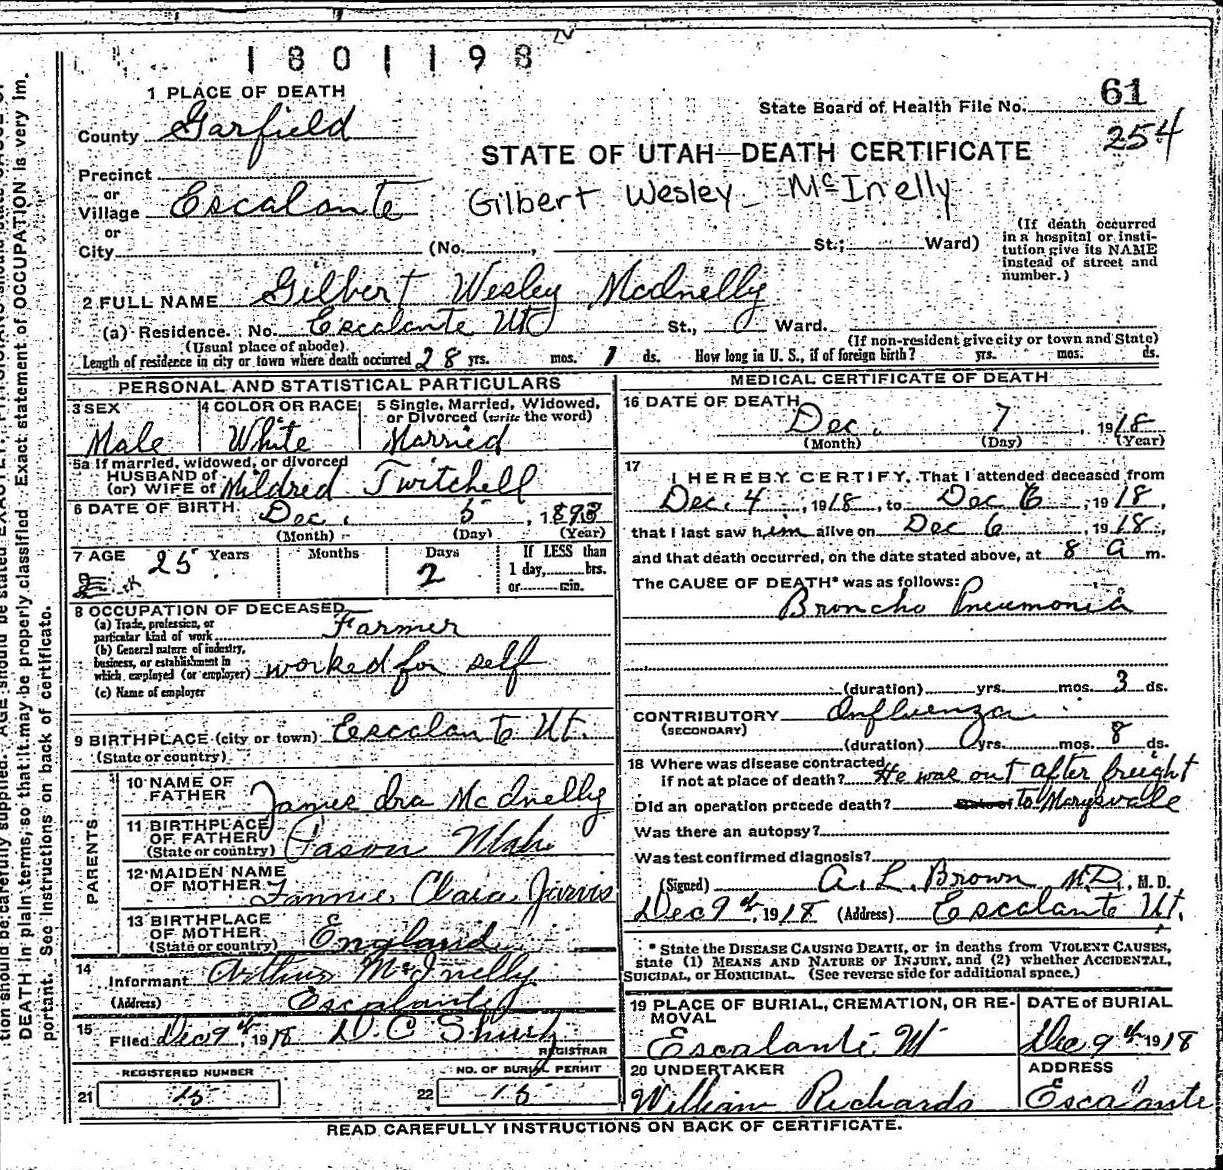 1801198
1 PLACE OF DEATH
61
State Board of Health File No.
254
County Garfield
STATE OF UTAH—DEATH CERTIFICATE
Precinct
or
Village Escalante
Gilbert Wesley McInelly
or
City (No. , St.; Ward)
(If death occurred in a hospital or institution give its NAME instead of street and number.)
2 FULL NAME Gilbert Wesley McInelly
(a) Residence. No. Escalante Ut St., Ward.
(Usual place of abode) (If non-resident give city or town and State)
Length of residence in city or town where death occurred 28 yrs. mos. 1 ds. How long in U. S., if of foreign birth? yrs. mos. ds.
PERSONAL AND STATISTICAL PARTICULARS
3 SEX 4 COLOR OR RACE 5 Single, Married, Widowed, or Divorced (write the word)
Male White Married
5a If married, widowed, or divorced
HUSBAND of
(or) WIFE of Mildred Twitchell
6 DATE OF BIRTH Dec. 5, 1893
(Month) (Day) (Year)
7 AGE 25 Years Months Days If LESS than
2 1 day, hrs.
or min.
8 OCCUPATION OF DECEASED
(a) Trade, profession, or
particular kind of work Farmer
(b) General nature of industry,
business, or establishment in
which employed (or employer) worked for self
(c) Name of employer
9 BIRTHPLACE (city or town) Escalante Ut.
(State or country)
PARENTS
10 NAME OF FATHER James Ira McInelly
11 BIRTHPLACE OF FATHER Pason Utah
(State or country)
12 MAIDEN NAME OF MOTHER Fannie Clara Jarvis
13 BIRTHPLACE OF MOTHER
(State or country) England
14 Informant Arthur McInelly
(Address) Escalante
15 Filed Dec 9th, 1918 D. C. Shurtz
REGISTRAR
REGISTERED NUMBER NO. OF BURIAL PERMIT
21 15 22 15
MEDICAL CERTIFICATE OF DEATH
16 DATE OF DEATH
Dec. 7, 1918
(Month) (Day) (Year)
17 I HEREBY CERTIFY, That I attended deceased from
Dec. 4, 1918, to Dec 6, 1918,
that I last saw him alive on Dec 6, 1918,
and that death occurred, on the date stated above, at 8 a m.
The CAUSE OF DEATH* was as follows:
Broncho Pneumonia
(duration) yrs. mos. 3 ds.
CONTRIBUTORY Influenza
(SECONDARY)
(duration) yrs. mos. 8 ds.
18 Where was disease contracted
if not at place of death? He was out after freight
Did an operation precede death? to Marysvale
Was there an autopsy?
Was test confirmed diagnosis?
(Signed) A. L. Brown M.D., M. D.
Dec 9th, 1918 (Address) Escalante Ut.
* State the DISEASE CAUSING DEATH, or in deaths from VIOLENT CAUSES,
state (1) MEANS AND NATURE OF INJURY, and (2) whether ACCIDENTAL,
SUICIDAL, or HOMICIDAL. (See reverse side for additional space.)
19 PLACE OF BURIAL, CREMATION, OR REMOVAL DATE of BURIAL
Escalante Ut Dec 9th 1918
20 UNDERTAKER ADDRESS
William Richards Escalante
READ CAREFULLY INSTRUCTIONS ON BACK OF CERTIFICATE.
tion should be carefully supplied. AGE should be stated EXACTLY.
DEATH in plain terms, so that it may be properly classified. Exact statement of OCCUPATION is very im-
portant. See instructions on back of certificate.